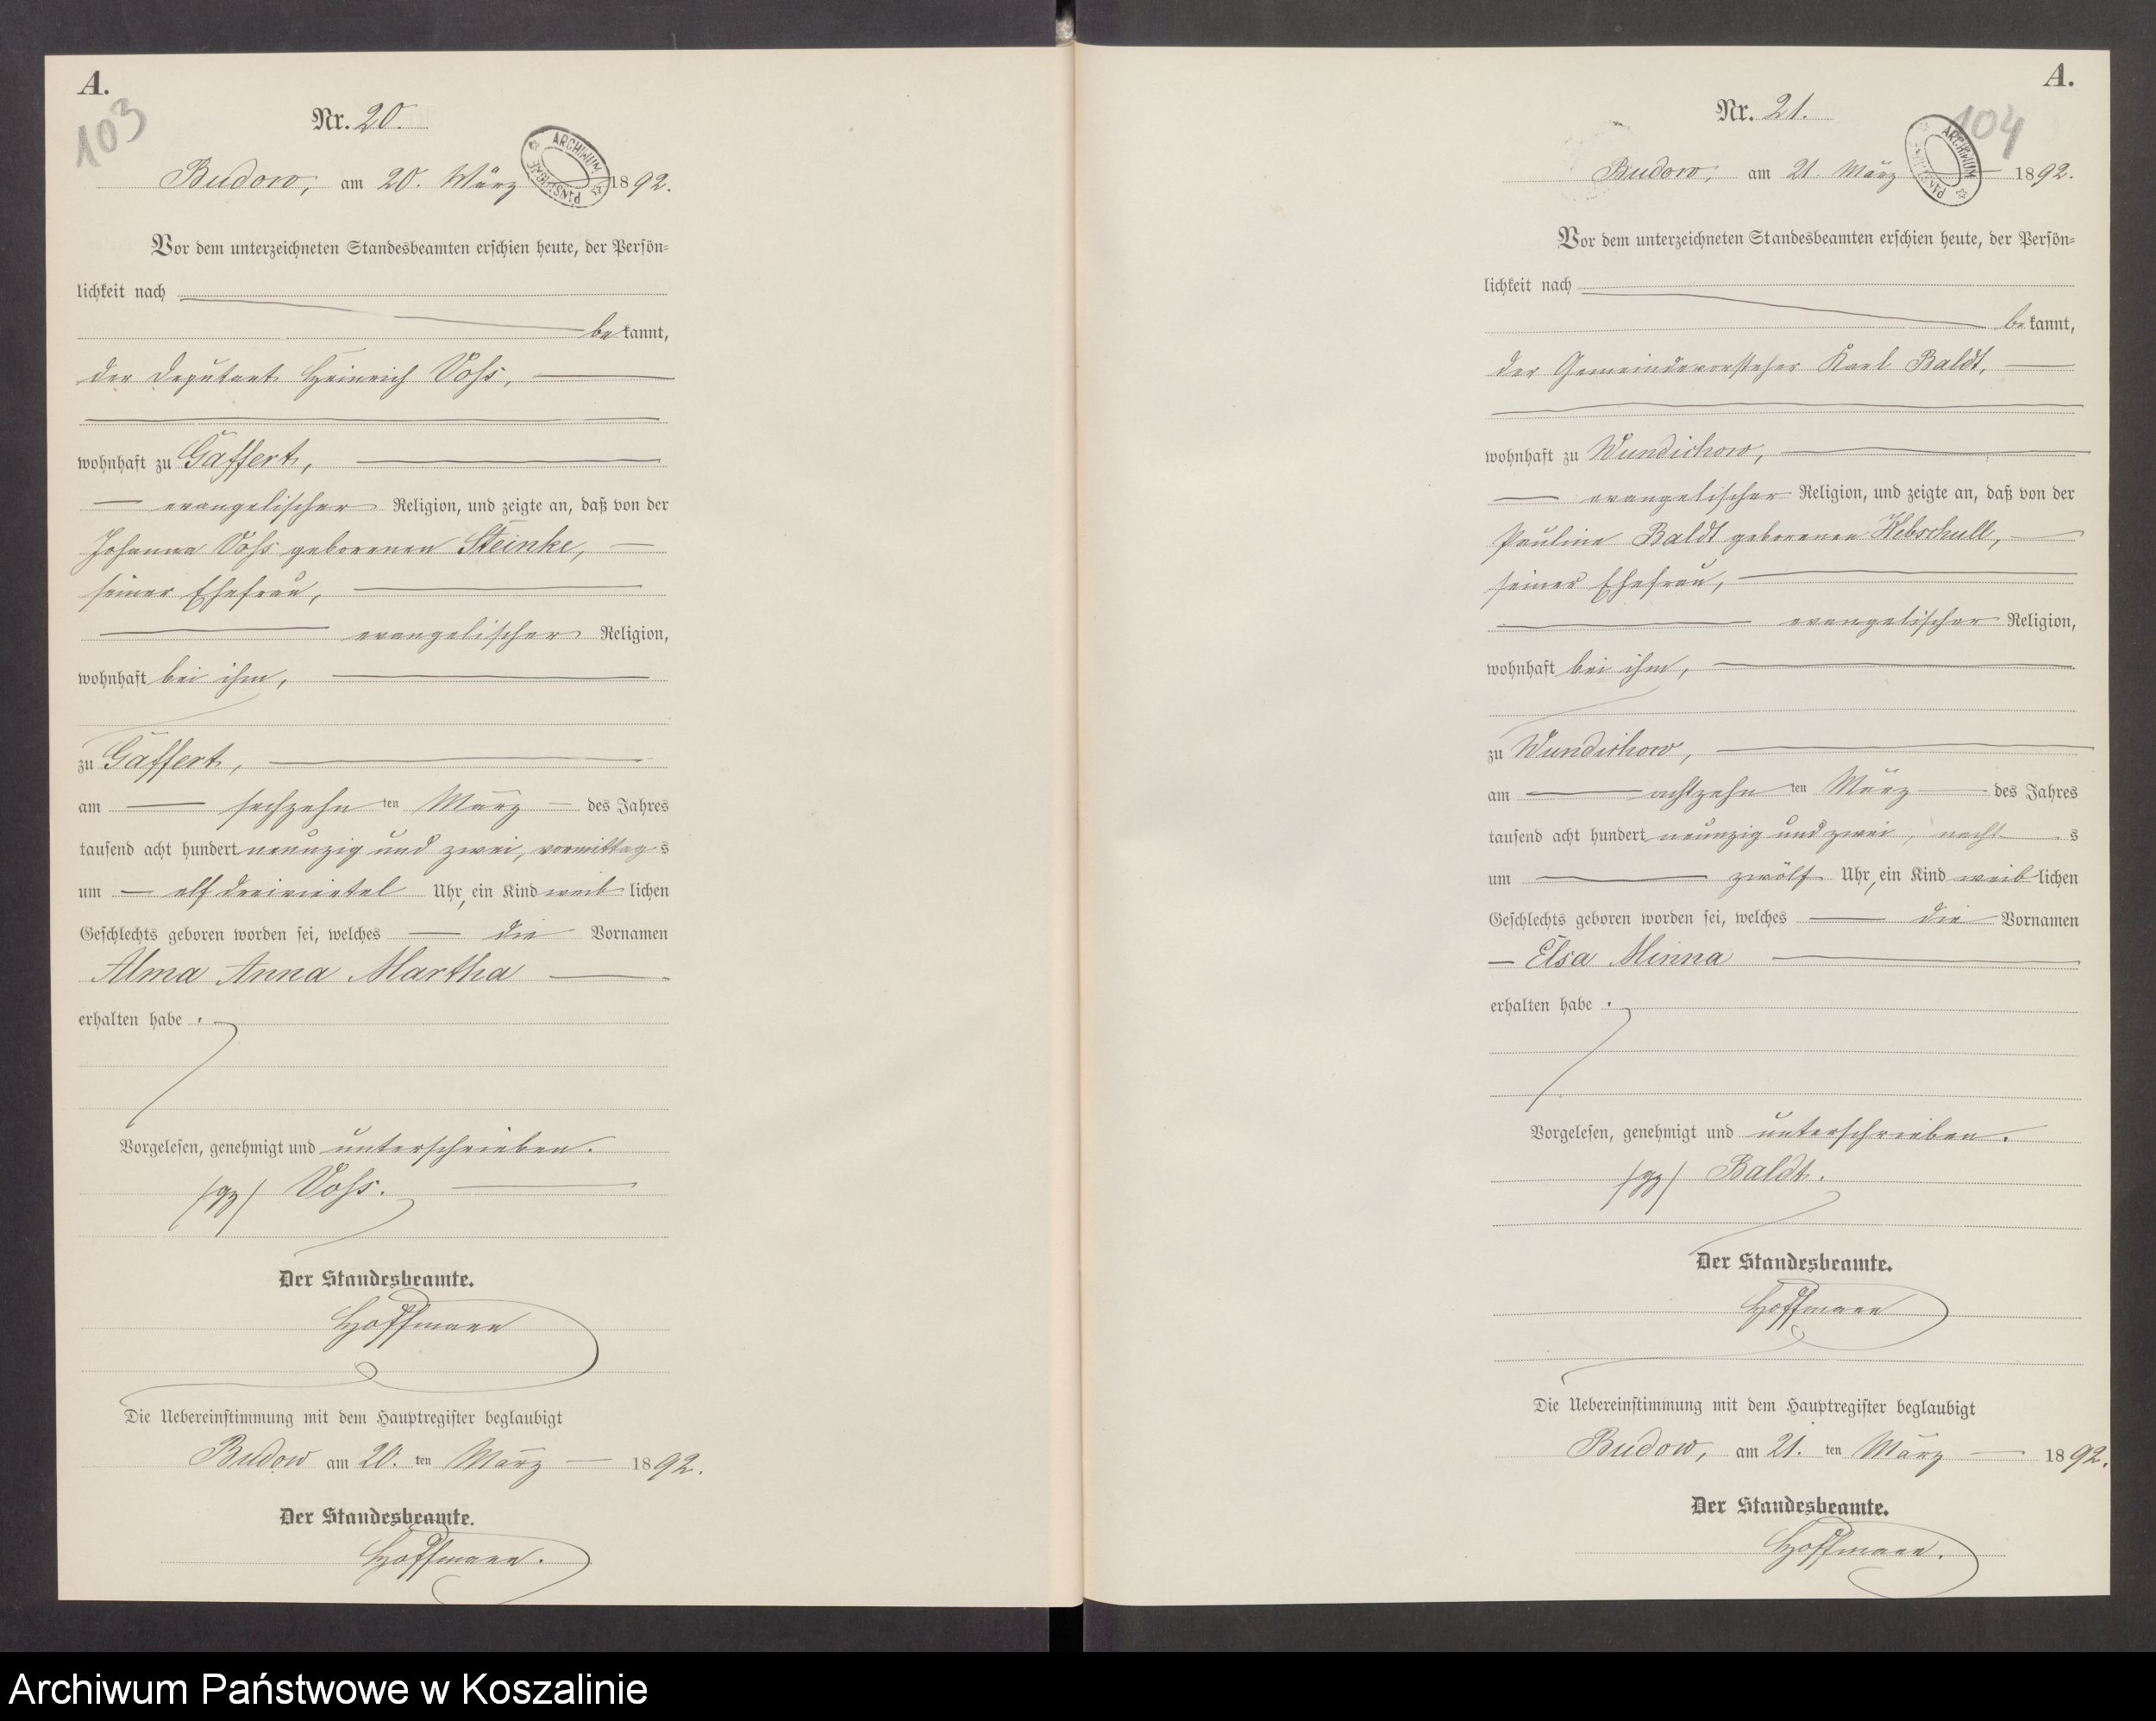 A.
103
Nr. 20.
ARCHIWUM PAŃSTWOWE
Budow, am 20. März 1892.
Vor dem unterzeichneten Standesbeamten erschien heute, der Persön-
lichkeit nach
be kannt,
der Deputant Heinrich Voß,
wohnhaft zu Gaffert,
evangelischer Religion, und zeigte an, daß von der
Johanna Voß geborenen Steinke,
seiner Ehefrau,
evangelischer Religion,
wohnhaft bei ihm,
zu Gaffert,
am sechzehn ten März des Jahres
tausend acht hundert neunzig und zwei, vormittag s
um elf dreiviertel Uhr, ein Kind weib lichen
Geschlechts geboren worden sei, welches die Vornamen
Alma Anna Martha
erhalten habe.
Vorgelesen, genehmigt und unterschrieben.
/gz/ Voß.
Der Standesbeamte.
Hoffmann
Die Uebereinstimmung mit dem Hauptregister beglaubigt
Budow am 20. ten März 1892.
Der Standesbeamte.
Hoffmann.
A.
104
Nr. 21.
ARCHIWUM PAŃSTWOWE
Budow, am 21. März 1892.
Vor dem unterzeichneten Standesbeamten erschien heute, der Persön-
lichkeit nach
be kannt,
der Gemeindevorsteher Karl Baldt,
wohnhaft zu Wundichow,
evangelischer Religion, und zeigte an, daß von der
Pauline Baldt geborenen Kebschull,
seiner Ehefrau,
evangelischer Religion,
wohnhaft bei ihm,
zu Wundichow,
am achtzehn ten März des Jahres
tausend acht hundert neunzig und zwei, nacht s
um zwölf Uhr, ein Kind weib lichen
Geschlechts geboren worden sei, welches die Vornamen
Elsa Minna
erhalten habe.
Vorgelesen, genehmigt und unterschrieben.
/gz/ Baldt.
Der Standesbeamte.
Hoffmann
Die Uebereinstimmung mit dem Hauptregister beglaubigt
Budow, am 21. ten März 1892.
Der Standesbeamte.
Hoffmann.
Archiwum Państwowe w Koszalinie